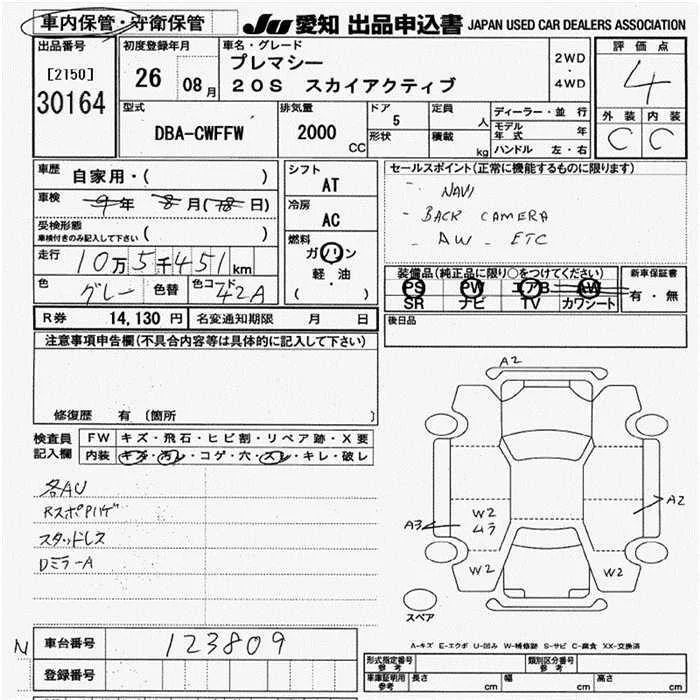 車内保管・守衛保管 JU 愛知 出品申込書 JAPAN USED CAR DEALERS ASSOCIATION
出品番号 初度登録年月 車名・グレード 評価点
[2150] 26 08月 プレマシー 2WD・4WD 4
30164 20S スカイアクティブ
型式 排気量 ドア 定員 ディーラー・並行 外装 内装
DBA-CWFFW 2000CC 5 人 モデル年式 年 C C
形状 積載 kg ハンドル 左・右
車歴 自家用・( ) シフト AT セールスポイント(正常に機能するものに限ります)
車検 9年 8月(18日) 冷房 AC - NAVI
受検形態 ( ) - BACK CAMERA
車検付きのみ記入して下さい 燃料 - AW - ETC
走行 10万5千451km ガソリン
軽・油 装備品(純正品に限り○をつけてください) 新車保証書
色 グレー 色替 色コード 42A ( ) PS PW エアB AW 有・無
SR ナビ TV カワシート
R券 14,130円 名変通知期限 月 日 後日品
注意事項申告欄(不具合内容等は具体的に記入して下さい)
修復歴 有 〔箇所 〕
検査員記入欄 FW キズ・飛石・ヒビ割・リペア跡・X要
内装 キズ・汚レ・コゲ・穴・スレ・キレ・破レ
各AU
Rスポイハゲ
スタッドレス
Dミラ-A
A2
A2
W2
ムラ
A3
W2 W2
スペア
A-キズ E-エクボ U-凹み W-補修跡 S-サビ C-腐食 XX-交換済
N 車台番号 123809
登録番号
形式指定番号参考 類別区分番号参考
車庫証明用参考 長さ cm 幅 cm 高さ cm